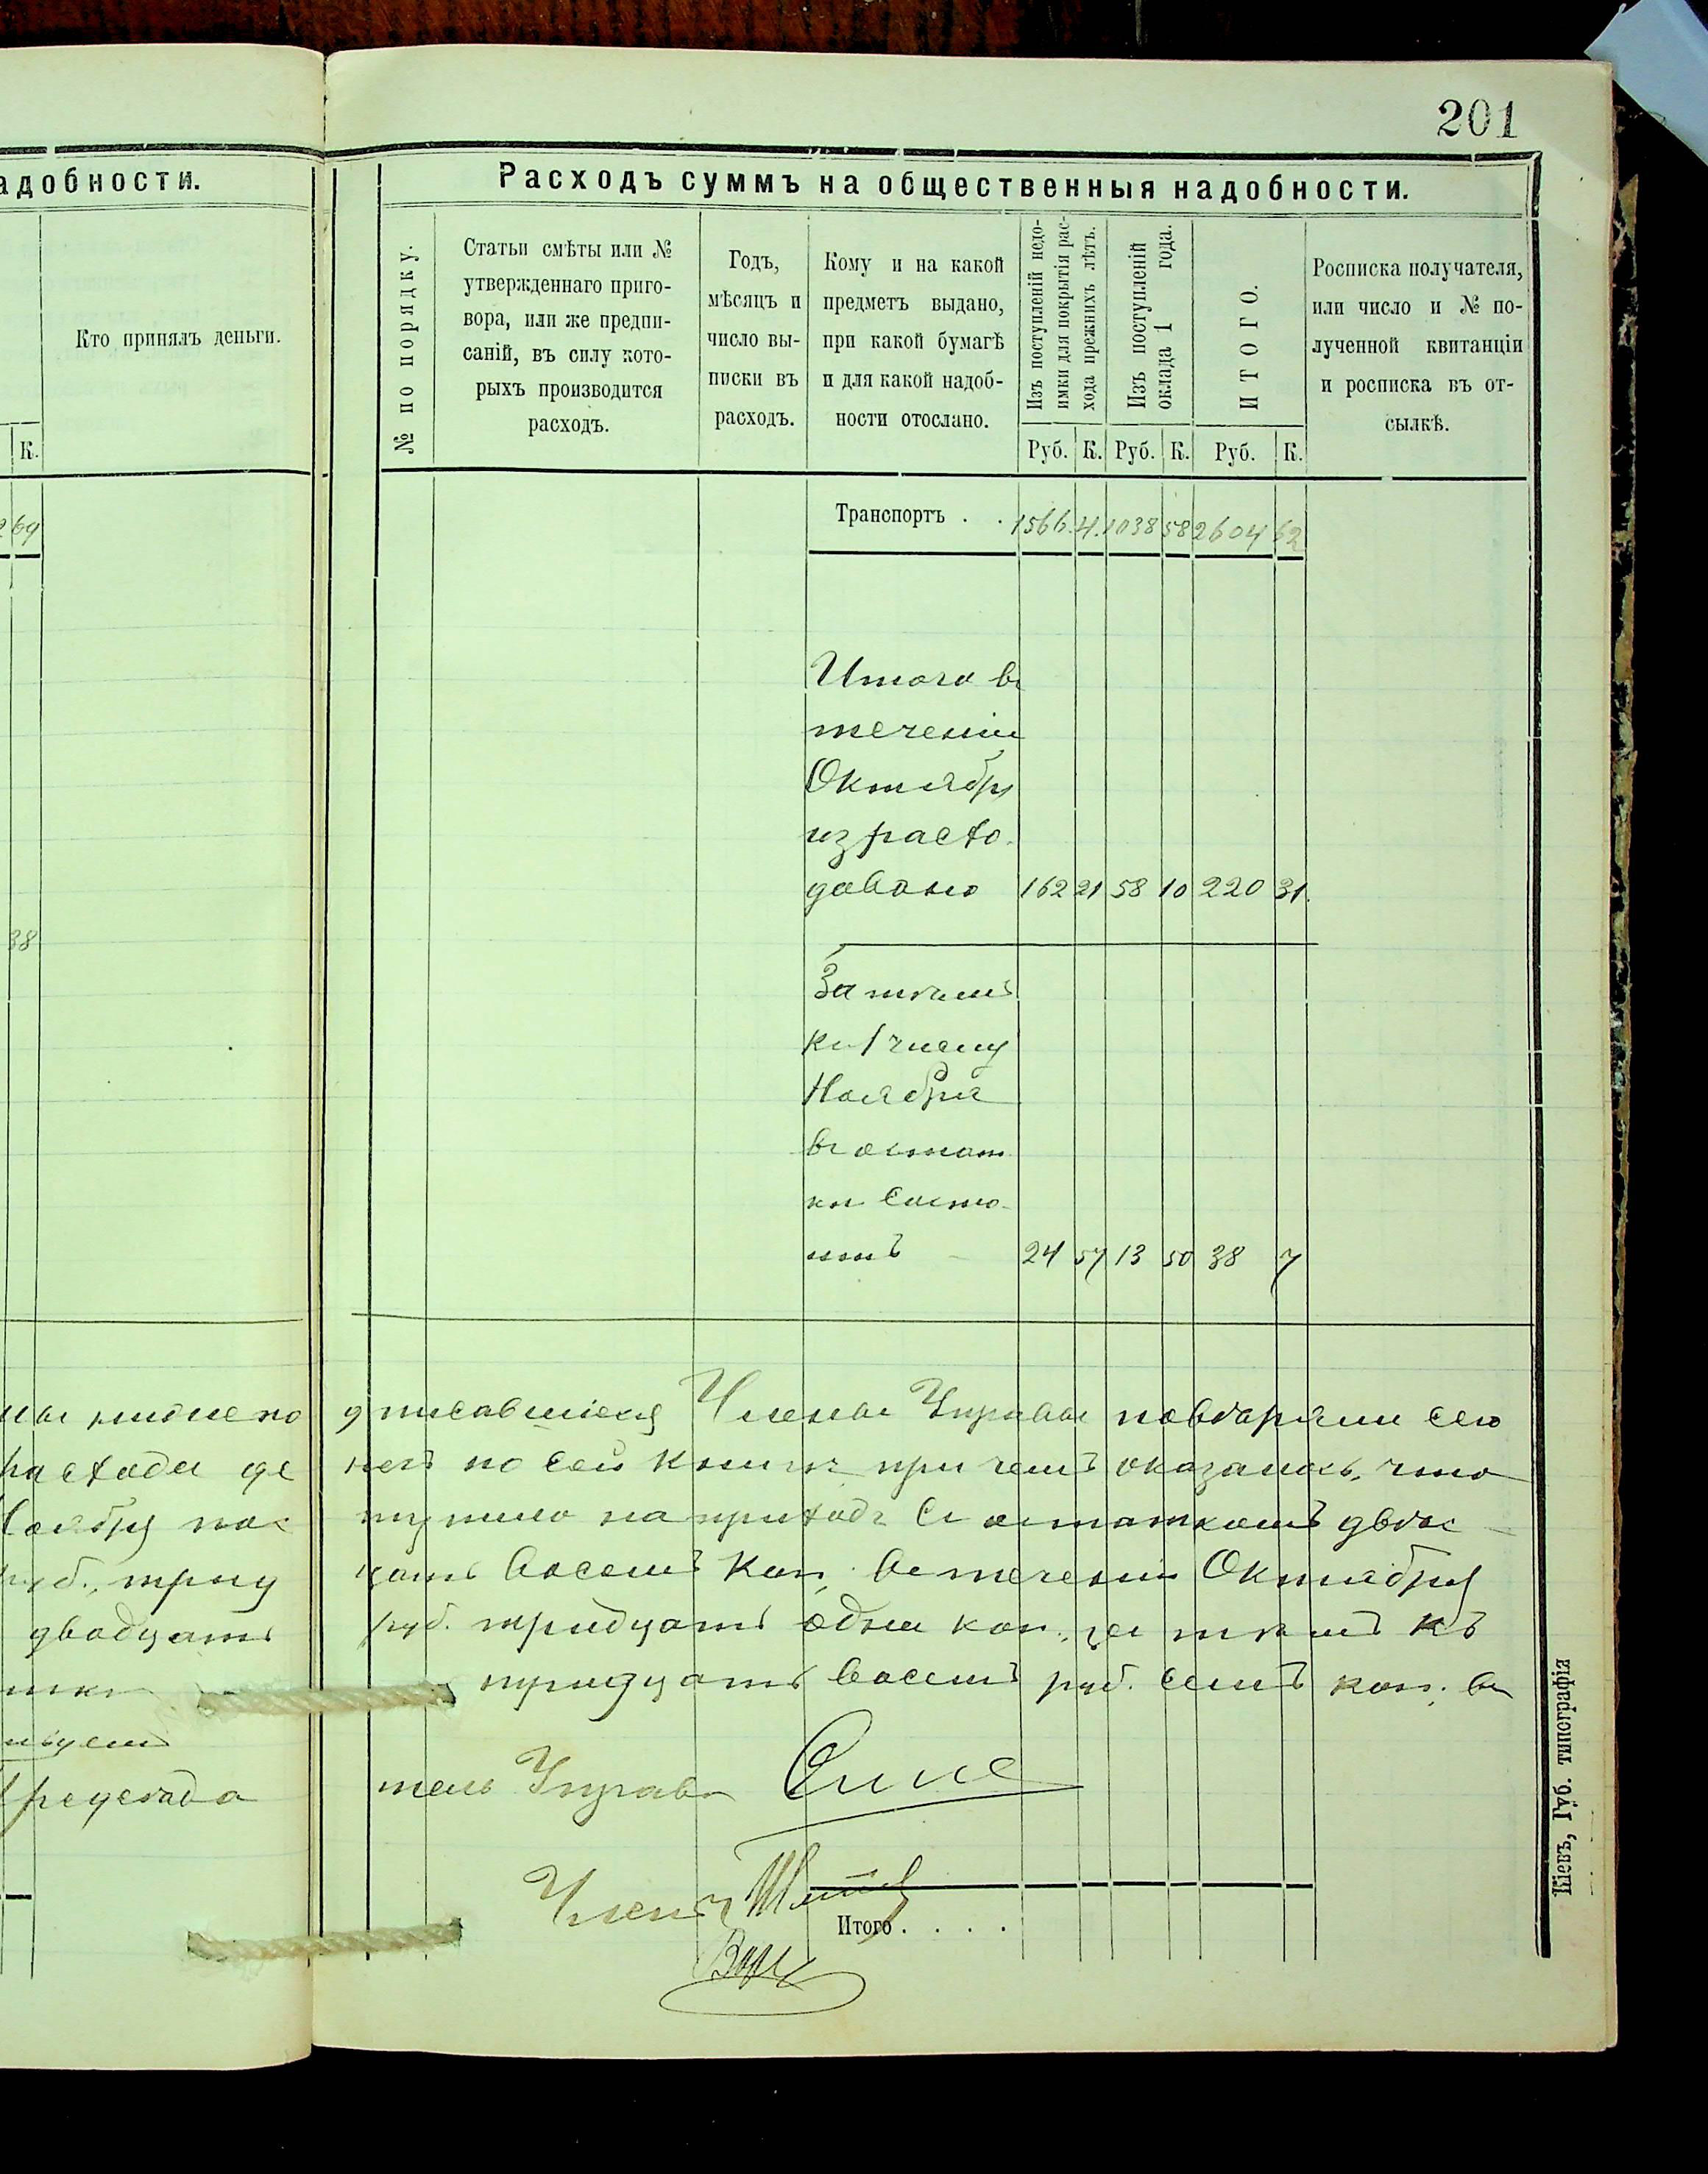 201
адобности.
Кто принялъ деньги.
К.
69
38
Расходъ суммъ на общественныя надобности.
№ по порядку.
Статьи смѣты или №
утвержденнаго приго-
вора, или же предпи-
саній, въ силу кото-
рыхъ производится
расходъ.
Годъ,
мѣсяцъ и
число вы-
писки въ
расходъ.
Кому и на какой
предметъ выдано,
при какой бумагѣ
и для какой надоб-
ности отослано.
Изъ поступленій недо-
имки для покрытія рас-
хода прежнихъ лѣтъ.
Изъ поступленій
оклада 1 года.
ИТОГО.
Росписка получателя,
или число и № по-
лученной квитанціи
и росписка въ от-
сылкѣ.
Руб. К. Руб. К. Руб. К.
Транспортъ . . 1566. 4. 1038 58 2604 62
Итого въ
теченіи
Октября
израсхо-
довано 162 21 58 10 220 31.
Затѣмъ
къ 1 числу
Ноября
въ остат
кѣ состо-
итъ - 24 57 13 50 38 7
мы нижепо дписавшіеся Члены Управы повѣряли сею
расхода де негъ по сей книгѣ при чемъ оказалось, что
Ноября пос тупило на приходъ съ остаткомъ двѣс-
руб., трид цать восемь коп, въ теченіи Октября
двадцать руб. тридцать одна коп., за тѣмъ къ
тридцать восемь руб. семь коп. въ
Предсѣда тель Управы
Члены
Итого . . . .
Кіевъ, Губ. типографія